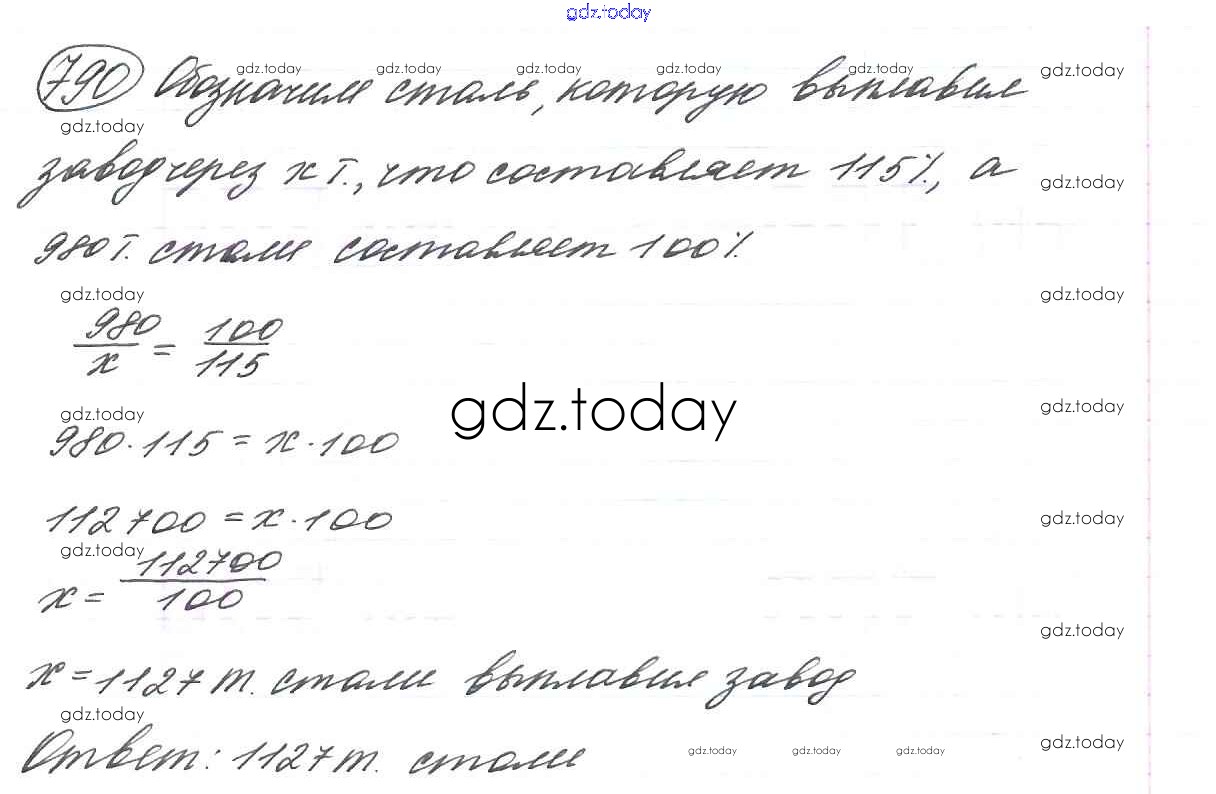 gdz.today
790 Обозначим сталь, которую выплавил
gdz.today gdz.today gdz.today gdz.today gdz.today gdz.today
gdz.today
завод через x т., что составляет 115%, а
gdz.today
980 т. стали составляет 100%.
gdz.today gdz.today
980/x = 100/115
gdz.today gdz.today gdz.today
980·115 = x·100
112700 = x·100
gdz.today
gdz.today
x = 112700/100
gdz.today
x = 1127 т. стали выплавил завод
gdz.today
Ответ: 1127 т. стали
gdz.today gdz.today gdz.today gdz.today